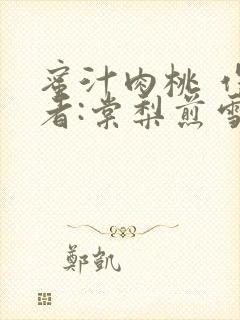 蜜汁肉桃 作
者:棠梨煎雪
鄭凱